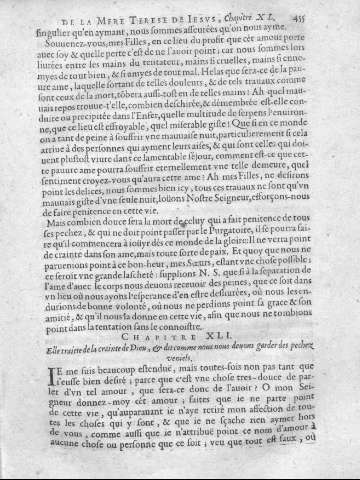 DE LA MERE TERESE DE IESVS, Chapitre XL. 455
singulier qu'en aymant, nous sommes asseurées qu'on nous ayme.
Souuenez-vous, mes Filles, en ce lieu du profit que cét amour porte
auec soy & quelle perte c'est de ne l'auoir point; car nous sommes li-
urées entre les mains du tentateur, mains si cruelles, mains si enne-
myes de tout bien, & si amyes de tout mal. Helas que sera-ce de la pau-
ure ame, laquelle sortant de telles douleurs, & de tels trauaux comme
sont ceux de la mort, tobera aussi-tost en de telles mains? Ah quel mau-
uais repos trouue-t'elle, combien deschirée, & démembrée est-elle con-
duite ou precipitée dans l'Enfer, quelle multitude de serpens l'enuiron-
ne, que ce lieu est effroyable, quel miserable giste! Que si en ce monde
on a tant de peine à souffrir vne mauuaise nuit, particulierement si cela
arriue à des personnes qui ayment leurs aises, & qui sont celles qui doi-
uent plustost viure dans ce lamentable séjour, comment est-ce que cet-
te pauure ame pourra souffrir eternellement vne telle demeure, quel
sentiment croyez-vous qu'aura cette ame! Ah mes Filles, ne desirons
point les delices, nous sommes bien icy, tous ces trauaux ne sont qu'vn
mauuais giste d'vne seule nuit, loüons Nostre Seigneur, efforçons-nous
de faire penitence en cette vie.
Mais combien douce sera la mort de celuy qui a fait penitence de tous
ses pechez, & qui ne doit point passer par le Purgatoire, il se pourra fai-
re qu'il commencera à ioüyr dés ce monde de la gloire: Il ne verra point
de crainte dans son ame, mais toute sorte de paix. Et quoy que nous ne
paruenions point à ce bon-heur, mes Sœurs, estant vne chose possible;
ce seroit vne grande lascheté: supplions N. S. que si à la separation de
l'ame d'auec le corps nous deuons receuoir des peines, que ce soit dans
vn lieu où nous ayons l'esperance d'en estre desliurées, où nous les en-
durions de bonne volonté, où nous ne perdions point sa grace & son
amitié, & qu'il nous la donne en cette vie, afin que nous ne tombions
point dans la tentation sans le connoistre.
CHAPITRE XLI.
Elle traitte de la crainte de Dieu, & dit comme nous nous deuons garder des pechez
veniels.
IE me suis beaucoup estenduë, mais toutes-fois non pas tant que
i'eusse bien desiré; parce que c'est vne chose tres-douce de par-
ler d'vn tel amour, que sera-ce donc de l'auoir? O mon Sei-
gneur donnez-moy cét amour; faites que ie ne parte point
de cette vie, qu'auparauant ie n'aye retiré mon affection de tou-
tes les choses qui y sont, & que ie ne sçache rien aymer hors
de vous, comme aussi que ie n'attribuë point ce nom d'amour à
aucune chose ou personne que ce soit; veu que tout est faux, où